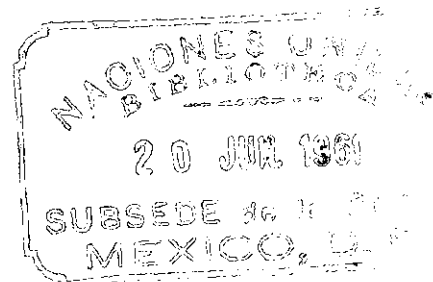 NACIONES UN
BIBLIOTECA
20 JUN. 1961
SUBSEDE
MEXICO, D.